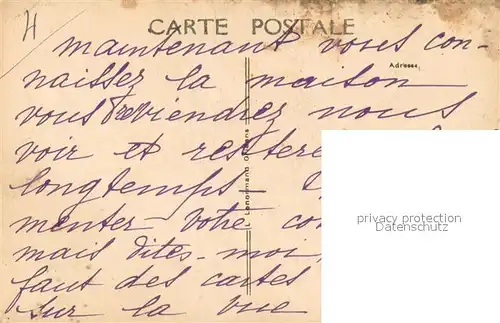 H
CARTE POSTALE
maintenant vous con-
Adresse
naissez la maison
vous reviendrez nous
voir et restere
longtemps -
menter votre con
mais dites-moi,
faut des cartes
sur la vue
L. Lenormand Orléans
privacy protection
Datenschutz